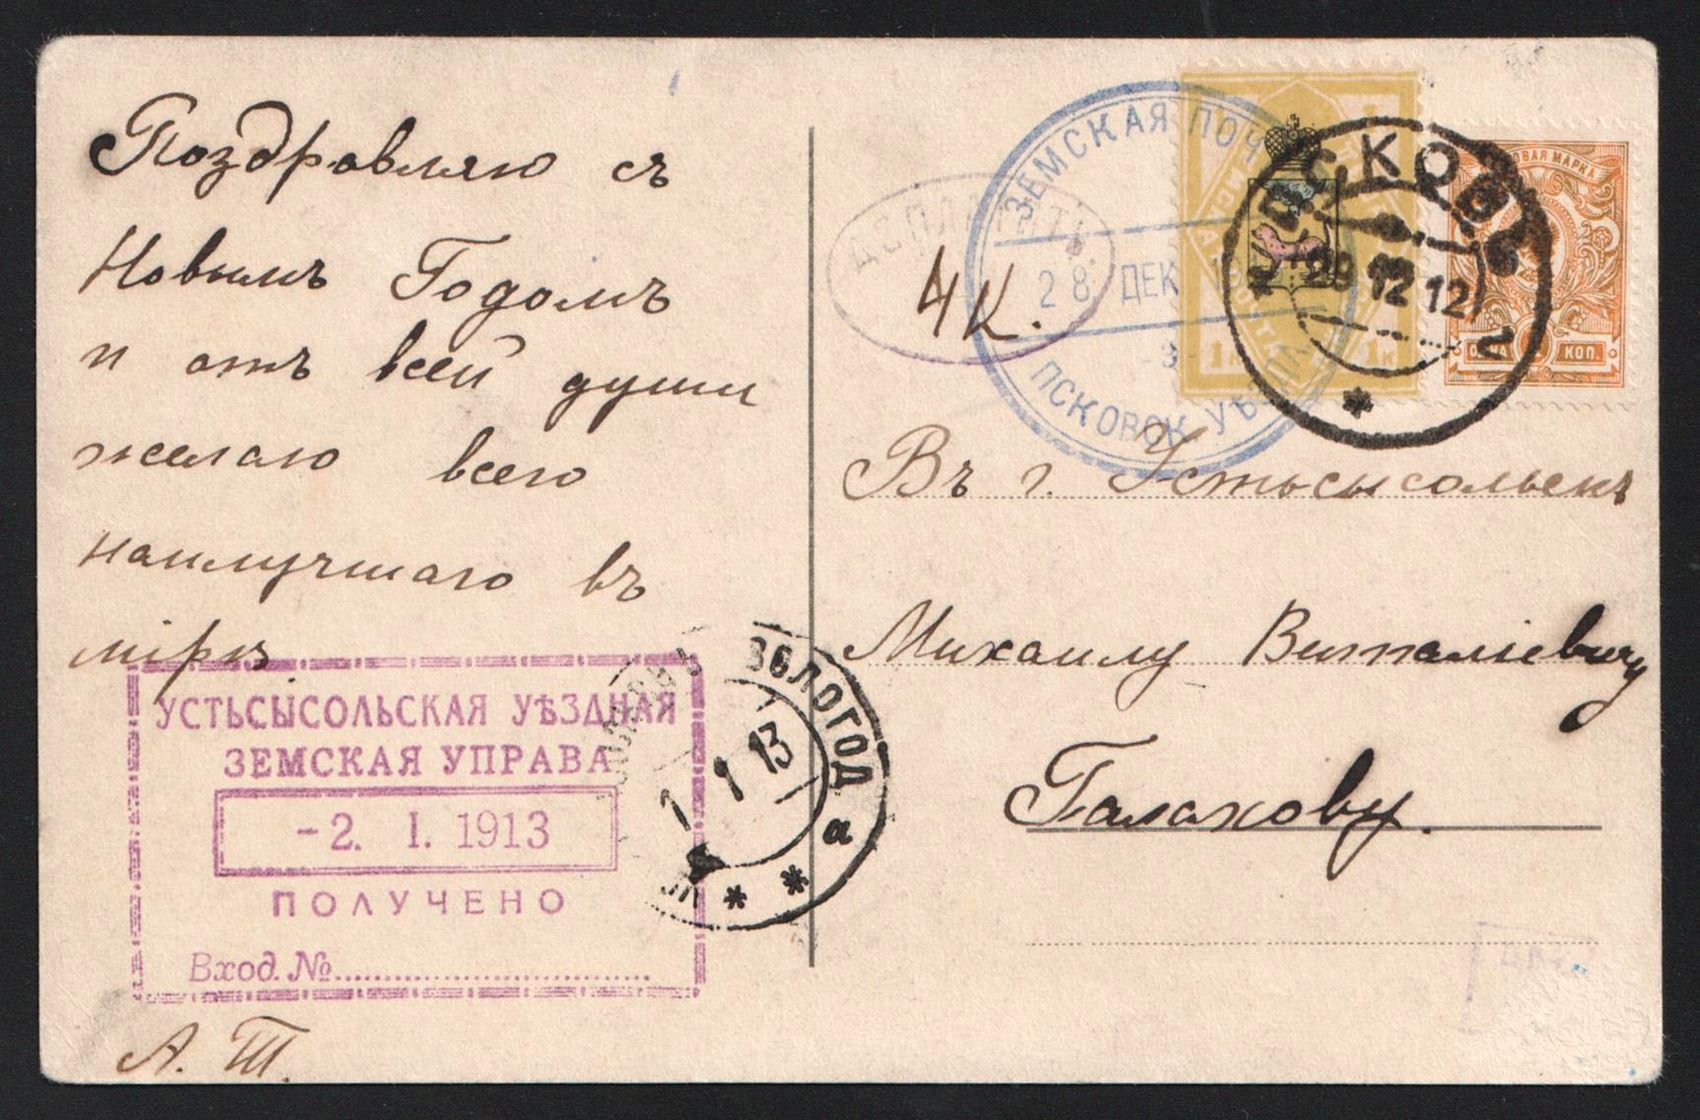 Поздравляю съ
Новымъ Годомъ
и отъ всей души
желаю всего
наилучшаго въ
мірѣ
А. Т.
УСТЬСЫСОЛЬСКАЯ УѢЗДНАЯ
ЗЕМСКАЯ УПРАВА
-2. I. 1913
ПОЛУЧЕНО
Вход. №
ВОЛОГОД
1 1 13
а
ДОПЛАТИТЬ.
4 к.
ЗЕМСКАЯ ПОЧ
28 ДЕК
ПСКОВСК УѢЗДА
ПСКОВЪ
29 12 12
г
ОВАЯ МАРКА
ОДНА КОП.
Въ г. Устьсысольскъ
Михаилу Виталіевичу
Галахову.